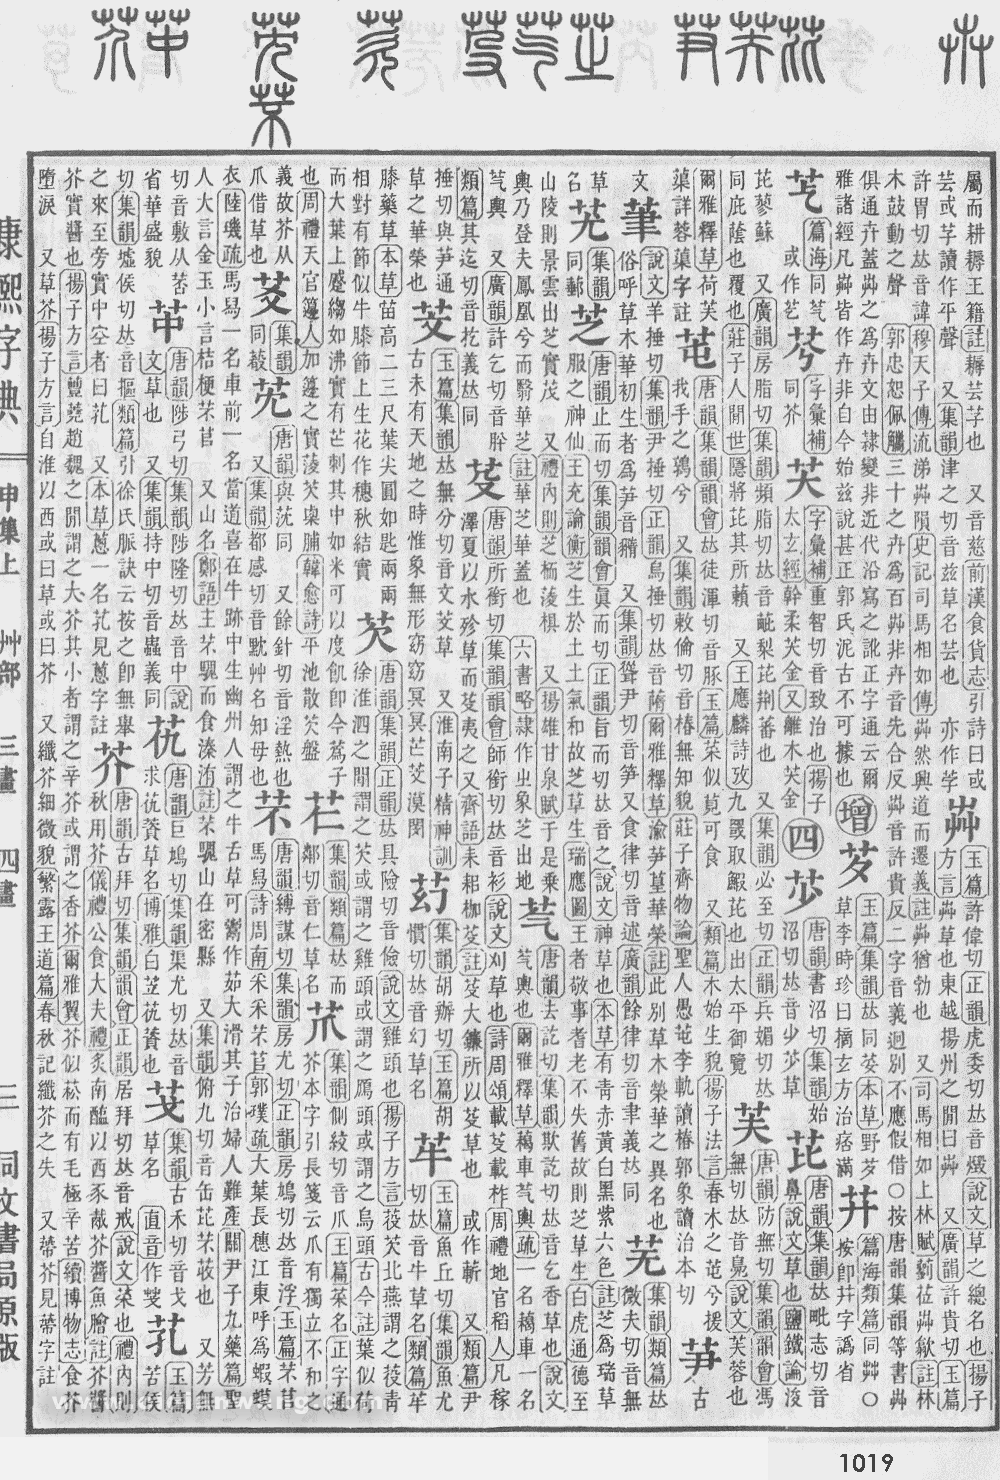 屬而耕耨王籍註耨芸芋也 又音慈前漢食貨志引詩曰或
芸或芓讀作平聲 又集韻津之切音兹草名芸也 亦作芓
茻 玉篇許偉切正韻虎委切𠀤音燬說文草之總名也揚子
方言茻草也東越揚州之閒曰茻 又廣韻許貴切玉篇
許胃切𠀤音諱穆天子傳流涕茻隕史記司馬相如傳茻然興道而遷義註茻猶勃也 又司馬相如上林賦藰莅茻歙註林
木鼓動之聲 郭忠恕佩觿三十之卉爲百茻非卉音先合反茻音許貴反二字音義迥別不應假借○按唐韻集韻等書茻
俱通卉蓋茻之爲卉文由隷變非近代沿寫之訛正字通云爾
雅諸經凡茻皆作卉非自今始兹說甚正郭氏泥古不可據也
增
芕 玉篇集韻𠀤同荽本草野芕
草李時珍曰摘玄方治痞滿
篇海類篇同艸○
按卽井字譌省
篇海同芞
或作艺
字彙補
同芥
芺 字彙補重智切音致治也揚子
太玄經幹柔芺金又離木芺金
四
唐韻書沼切集韻始
沼切𠀤音少草
芘 唐韻集韻𠀤毗志切音
鼻說文草也鹽鐵論浚
茈蓼蘇 又廣韻房脂切集韻頻脂切𠀤音毗梨芘荆蕃也 又集韻必至切正韻兵媚切𠀤
同庇蔭也覆也莊子人閒世隱將芘其所藾 又王應麟詩攷九罭取鰕芘也出太平御覽
芙 唐韻防無切集韻韻會馮
無切𠀤音鳧說文芙蓉也
爾雅釋草荷芙
蕖詳蓉蕖字註
芚 唐韻集韻韻會𠀤徒渾切音豚玉篇菜似莧可食 又類篇木始生貌揚子法言春木之芚兮援
我手之鶉兮 又集韻敕倫切音椿無知貌莊子齊物論聖人愚芚李軌讀椿郭象讀治本切
芛 古
文 說文羊捶切集韻尹捶切正韻烏捶切𠀤音蒍爾雅釋草渝芛葟華榮註此別草木榮華之異名也
俗呼草木華初生者爲芛音豬 又集韻聳尹切音筍又食律切音述廣韻餘律切音聿義𠀤同
芜 集韻類篇𠀤
微夫切音無
草
名
集韻
同鄦
芝 唐韻止而切集韻韻會眞而切正韻旨而切𠀤音之說文神草也本草有青赤黃白黑紫六色註芝爲瑞草
服之神仙王充論衡芝生於土土氣和故芝草生瑞應圖王者敬事耆老不失舊故則芝草生白虎通德至
山陵則景雲出芝實茂 又禮內則芝栭蔆椇 又揚雄甘泉賦于是乘
輿乃登夫鳳凰兮而翳華芝註華芝華蓋也 六書略隷作㞢象芝出地
芞 唐韻去訖切集韻欺訖切𠀤音乞香草也說文
芞輿也爾雅釋草藒車芞輿疏一名藒車一名
芞輿 又廣韻許乞切音肸
類篇其迄切音扢義𠀤同
芟 唐韻所銜切集韻韻會師銜切𠀤音衫說文刈草也詩周頌載芟載柞周禮地官稻人凡稼
澤夏以水殄草而芟夷之又齊語耒耜枷芟註芟大鎌所以芟草也 或作蕲 又類篇尹
捶切與芛通
草之華榮也
芠 玉篇集韻𠀤無分切音文芠草 又淮南子精神訓
古未有天地之時惟象無形窈窈冥冥芒芠漠閔
集韻胡辦切玉篇胡
慣切𠀤音幻草名
玉篇魚丘切集韻魚尤
切𠀤音牛草名類篇
膝藥草本草苗高二三尺葉尖圓如匙兩兩
相對有節似牛膝節上生花作穗秋結實
芡 唐韻集韻正韻𠀤具險切音儉說文雞頭也揚子方言葰芡北燕謂之葰青
徐淮泗之閒謂之芡或謂之雞頭或謂之鴈頭或謂之烏頭古今註葉似荷
而大葉上蹙縐如沸實有芒刺其中如米可以度飢卽今蔿子
也周禮天官籩人加籩之實蔆芡㮚脯韓愈詩平池散芡盤
芢 集韻類篇𠀤而
鄰切音仁草名
集韻側絞切音爪玉篇菜名正字通
芥本字引長箋云爪有獨立不和之
義故芥从
爪借草也
集韻
同菣
唐韻與荒同 又餘針切音淫熱也
又集韻都感切音黕艸名知母也
芣 唐韻縛謀切集韻房尤切正韻房鳩切𠀤音浮玉篇芣苢
馬舄詩周南采采芣苢郭璞疏大葉長穗江東呼爲蝦蟆
衣陸璣疏馬舄一名車前一名當道喜在牛跡中生幽州人謂之牛舌草可鬻作茹大滑其子治婦人難產關尹子九藥篇聖
人大言金玉小言桔梗芣苢 又山名鄭語主芣騩而食溱洧註芣騩山在密縣 又集韻俯九切音缶芘芣茷也 又芳無
切音敷从
省華盛貌
唐韻陟弓切集韻陟隆切𠀤音中說
文草也 又集韻持中切音蟲義同
唐韻巨鳩切集韻渠尤切𠀤音
求草名博雅白芷也
集韻古禾切音戈
草名 直音作
芤 玉篇
苦侯
切集韻墟侯切𠀤音摳類篇引徐氏脈訣云按之卽無舉
之來至旁實中空者曰芤 又本草蔥一名芤見蔥字註
芥 唐韻古拜切集韻韻會正韻居拜切𠀤音戒說文菜也禮內則
秋用芥儀禮公食大夫禮炙南醢以西豕胾芥醬魚膾註芥醬
芥實醬也揚子方言蘴蕘趙魏之閒謂之大芥其小者謂之辛芥或謂之香芥爾雅翼芥似菘而有毛極辛苦續博物志食芥
墮淚 又草芥揚子方言自淮以西或曰草或曰芥 又纖芥細微貌繁露王道篇春秋記纖芥之失 又蔕芥見蔕字註
康熙字典
申集上
艸部 三畫 四畫
三
同文書局原版
1019